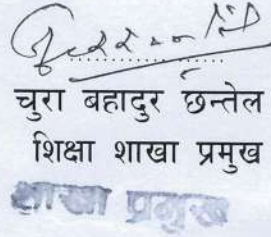 चुरा बहादुर छन्तेल
शिक्षा शाखा प्रमुख
शाखा प्रमुख